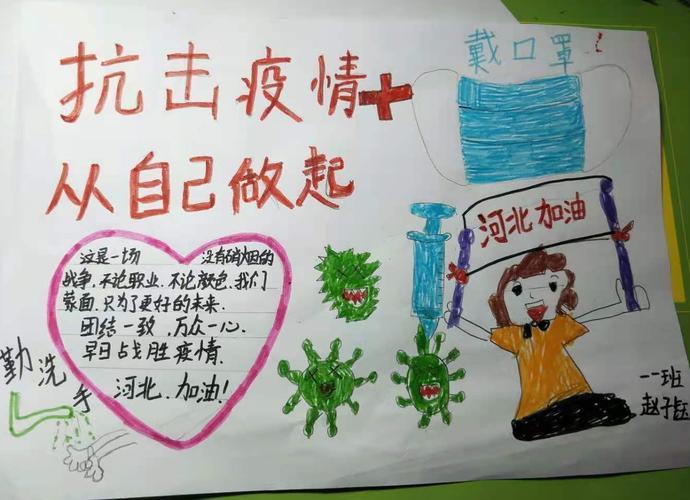 抗击疫情
从自己做起
戴口罩！
河北加油
这是一场 没有硝烟的
战争，不论职业，不论颜色，我们
蒙面，只为了更好的未来．
团结一致，万众一心．
早日占戈胜疫情．
河北，加油！
勤洗手
一一班
赵子钰